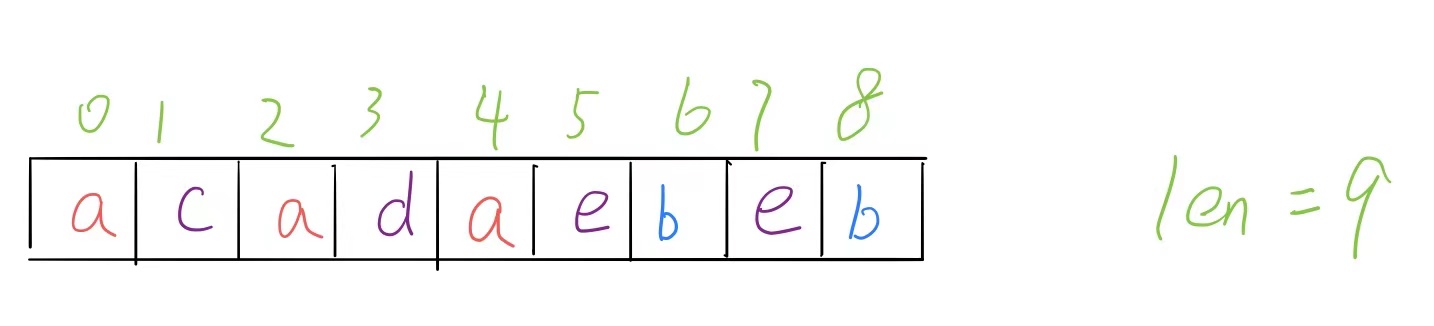 0 1 2 3 4 5 6 7 8
a c a d a e b e b
len = 9